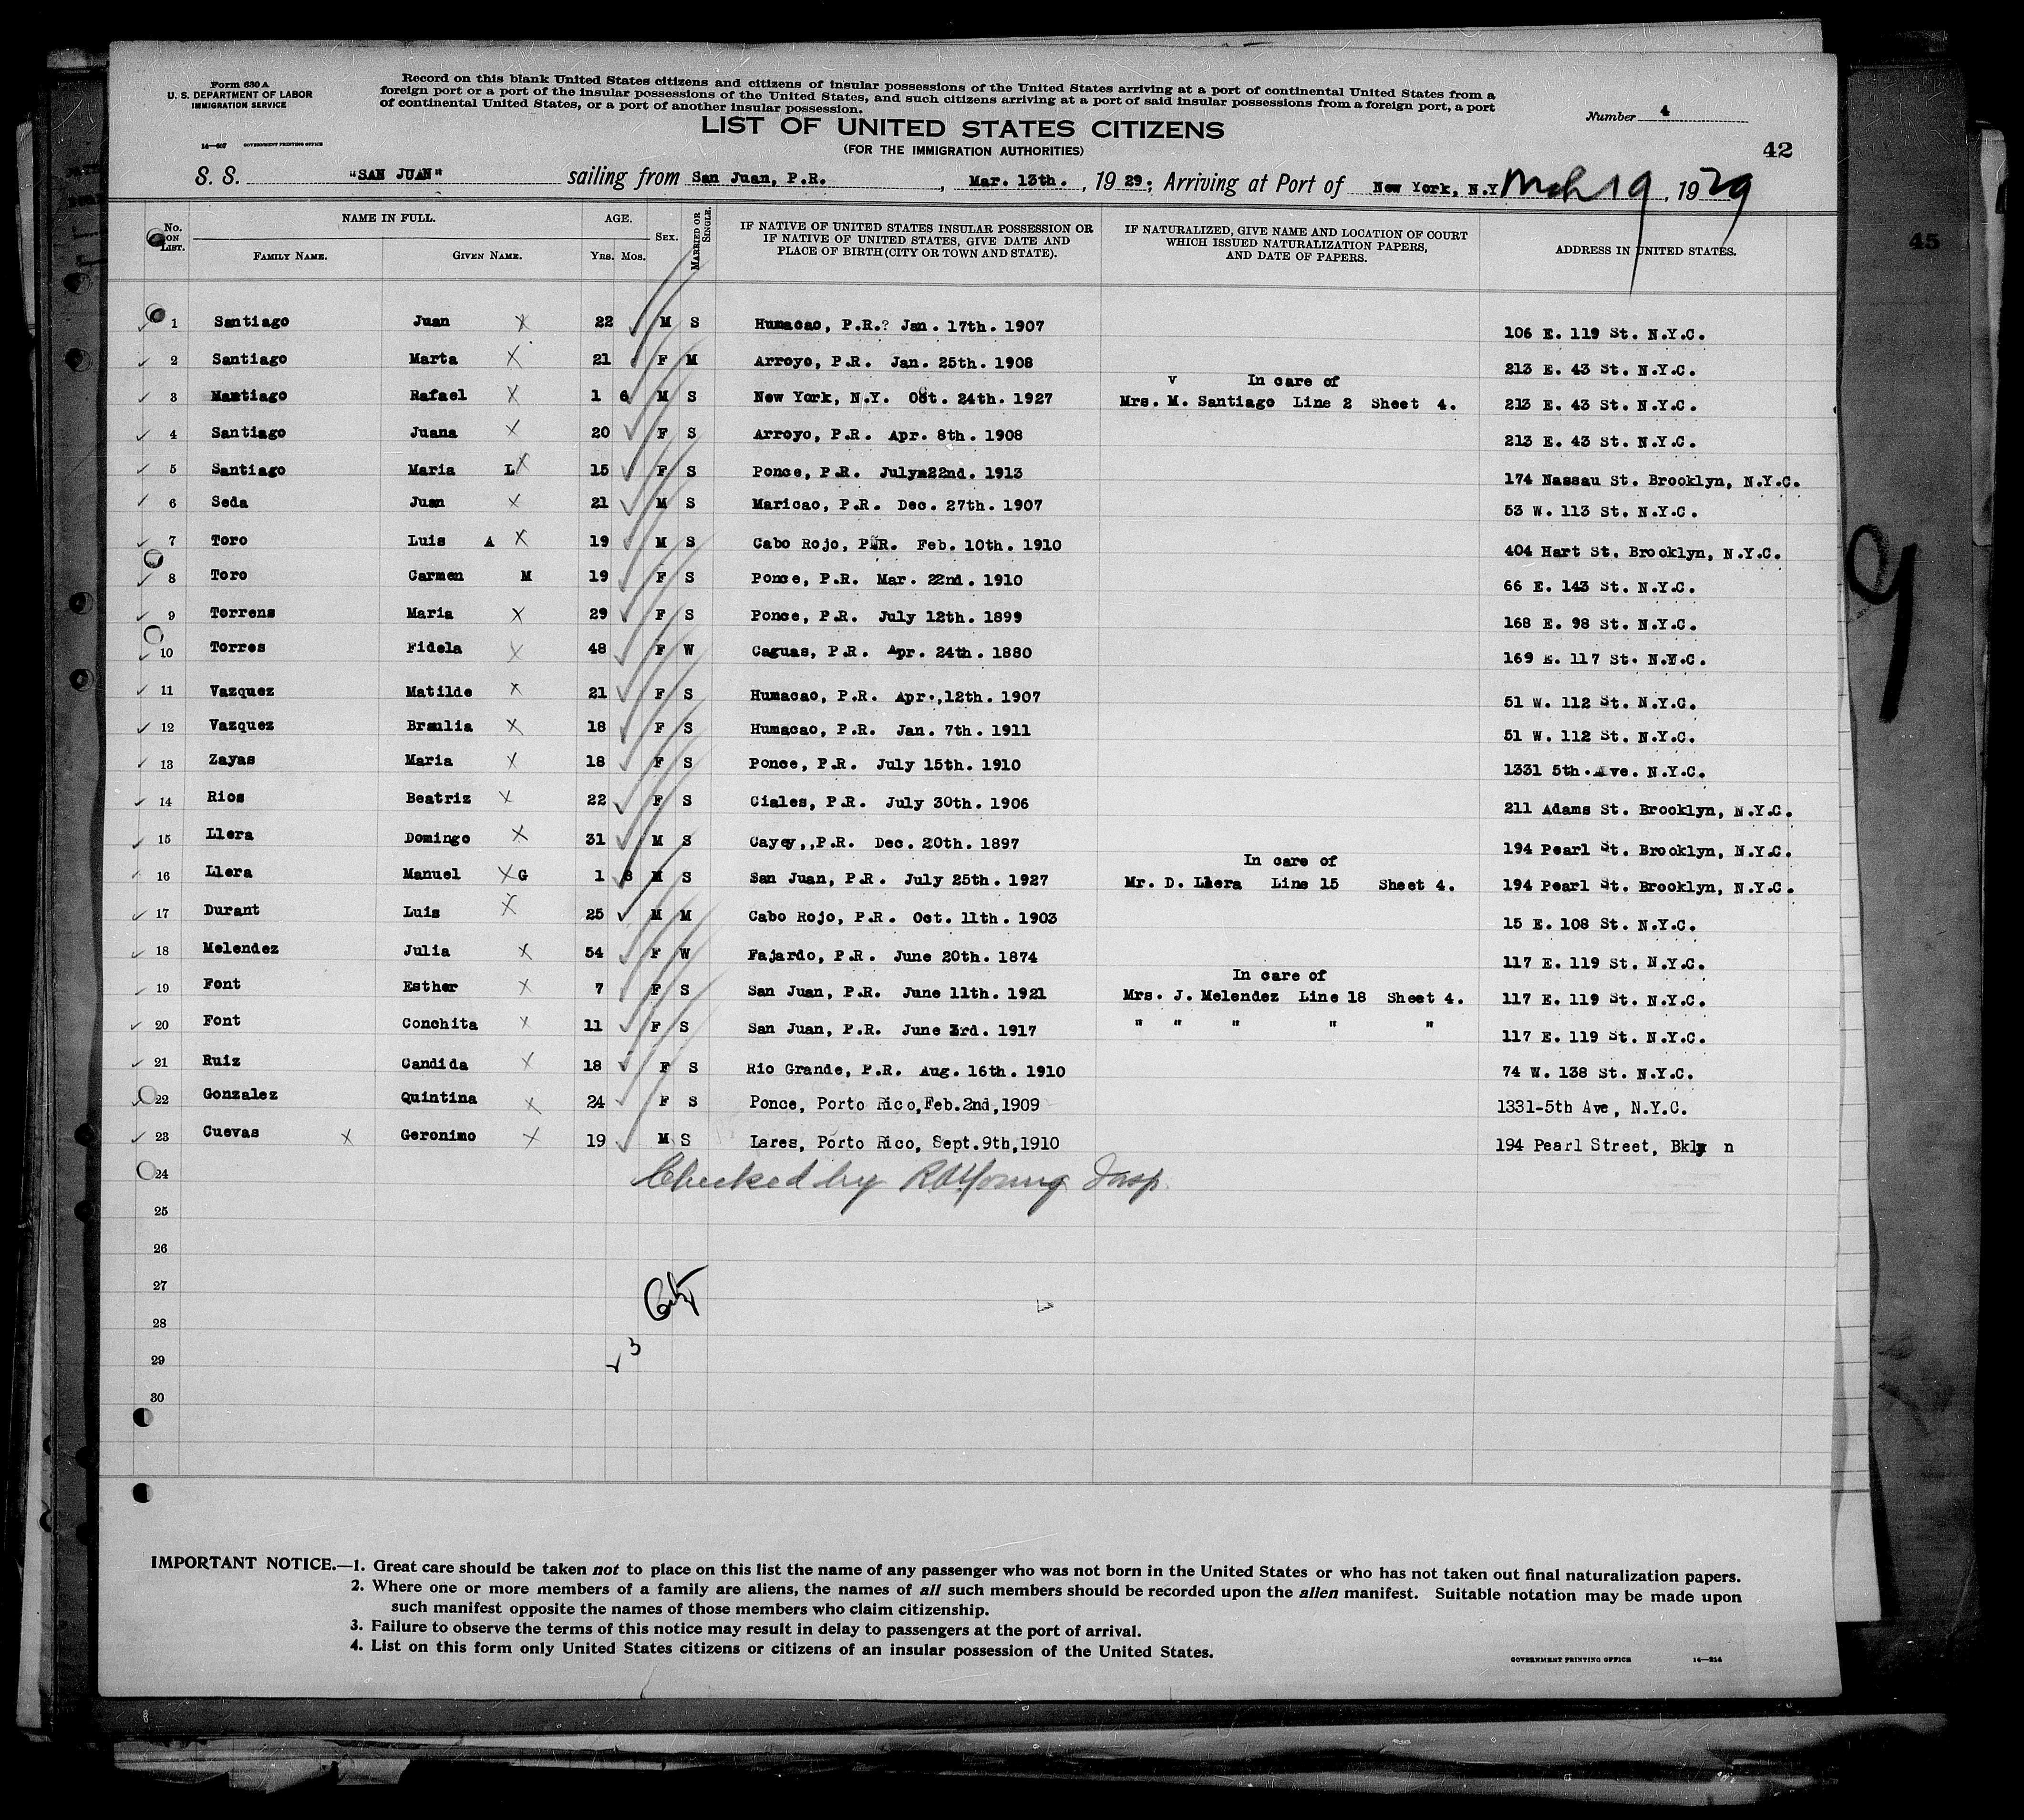 Form 630 A
U. S. DEPARTMENT OF LABOR
IMMIGRATION SERVICE
14—607 GOVERNMENT PRINTING OFFICE
Record on this blank United States citizens and citizens of insular possessions of the United States arriving at a port of continental United States from a
foreign port or a port of the insular possessions of the United States, and such citizens arriving at a port of said insular possessions from a foreign port, a port
of continental United States, or a port of another insular possession.
LIST OF UNITED STATES CITIZENS
(FOR THE IMMIGRATION AUTHORITIES)
Number 4
42
S. S. "SAN JUAN" sailing from San Juan, P.R. , Mar. 13th. , 19 29; Arriving at Port of New York, N.Y. Mch 19, 1929
No. ON LIST. NAME IN FULL. AGE. SEX. MARRIED OR SINGLE. IF NATIVE OF UNITED STATES INSULAR POSSESSION OR IF NATIVE OF UNITED STATES, GIVE DATE AND PLACE OF BIRTH (CITY OR TOWN AND STATE). IF NATURALIZED, GIVE NAME AND LOCATION OF COURT WHICH ISSUED NATURALIZATION PAPERS, AND DATE OF PAPERS. ADDRESS IN UNITED STATES.
FAMILY NAME. GIVEN NAME. YRS. MOS.
45
1 Santiago Juan X 22 M S Humacao, P.R.? Jan. 17th. 1907 106 E. 119 St. N.Y.C.
2 Santiago Marta X 21 F M Arroyo, P.R. Jan. 25th. 1908 213 E. 43 St. N.Y.C.
v In care of
3 Santiago Rafael X 1 6 M S New York, N.Y. Oct. 24th. 1927 Mrs. M. Santiago Line 2 Sheet 4. 213 E. 43 St. N.Y.C.
4 Santiago Juana X 20 F S Arroyo, P.R. Apr. 8th. 1908 213 E. 43 St. N.Y.C.
5 Santiago Maria L X 15 F S Ponce, P.R. July 22nd. 1913 174 Nassau St. Brooklyn, N.Y.C.
6 Seda Juan X 21 M S Maricao, P.R. Dec. 27th. 1907 53 W. 113 St. N.Y.C.
7 Toro Luis A X 19 M S Cabo Rojo, P.R. Feb. 10th. 1910 404 Hart St. Brooklyn, N.Y.C.
8 Toro Carmen M 19 F S Ponce, P.R. Mar. 22nd. 1910 66 E. 143 St. N.Y.C.
9 Torrens Maria X 29 F S Ponce, P.R. July 12th. 1899 168 E. 98 St. N.Y.C.
10 Torres Fidela X 48 F W Caguas, P.R. Apr. 24th. 1880 169 E. 117 St. N.Y.C.
11 Vazquez Matilde X 21 F S Humacao, P.R. Apr.,12th. 1907 51 W. 112 St. N.Y.C.
12 Vazquez Braulia X 18 F S Humacao, P.R. Jan. 7th. 1911 51 W. 112 St. N.Y.C.
13 Zayas Maria X 18 F S Ponce, P.R. July 15th. 1910 1331 5th. Ave. N.Y.C.
14 Rios Beatriz X 22 F S Ciales, P.R. July 30th. 1906 211 Adams St. Brooklyn, N.Y.C.
15 Llera Domingo X 31 M S Cayey,,P.R. Dec. 20th. 1897 194 Pearl St. Brooklyn, N.Y.C.
In care of
16 Llera Manuel X G 1 8 M S San Juan, P.R. July 25th. 1927 Mr. D. Llera Line 15 Sheet 4. 194 Pearl St. Brooklyn, N.Y.C.
17 Durant Luis X 25 M M Cabo Rojo, P.R. Oct. 11th. 1903 15 E. 108 St. N.Y.C.
18 Melendez Julia X 54 F W Fajardo, P.R. June 20th. 1874 117 E. 119 St. N.Y.C.
In care of
19 Font Esther X 7 F S San Juan, P.R. June 11th. 1921 Mrs. J. Melendez Line 18 Sheet 4. 117 E. 119 St. N.Y.C.
20 Font Conchita X 11 F S San Juan, P.R. June 3rd. 1917 " " " " " 117 E. 119 St. N.Y.C.
21 Ruiz Candida X 18 F S Rio Grande, P.R. Aug. 16th. 1910 74 W. 138 St. N.Y.C.
22 Gonzalez Quintina X 24 F S Ponce, Porto Rico,Feb.2nd,1909 1331-5th Ave, N.Y.C.
23 Cuevas X Geronimo X 19 M S Lares, Porto Rico, Sept.9th,1910 194 Pearl Street, Bkly n
24 Checked by Young Insp.
25
26
27
28
29
30
3
9
IMPORTANT NOTICE.—1. Great care should be taken not to place on this list the name of any passenger who was not born in the United States or who has not taken out final naturalization papers.
2. Where one or more members of a family are aliens, the names of all such members should be recorded upon the alien manifest. Suitable notation may be made upon
such manifest opposite the names of those members who claim citizenship.
3. Failure to observe the terms of this notice may result in delay to passengers at the port of arrival.
4. List on this form only United States citizens or citizens of an insular possession of the United States.
GOVERNMENT PRINTING OFFICE 14—214